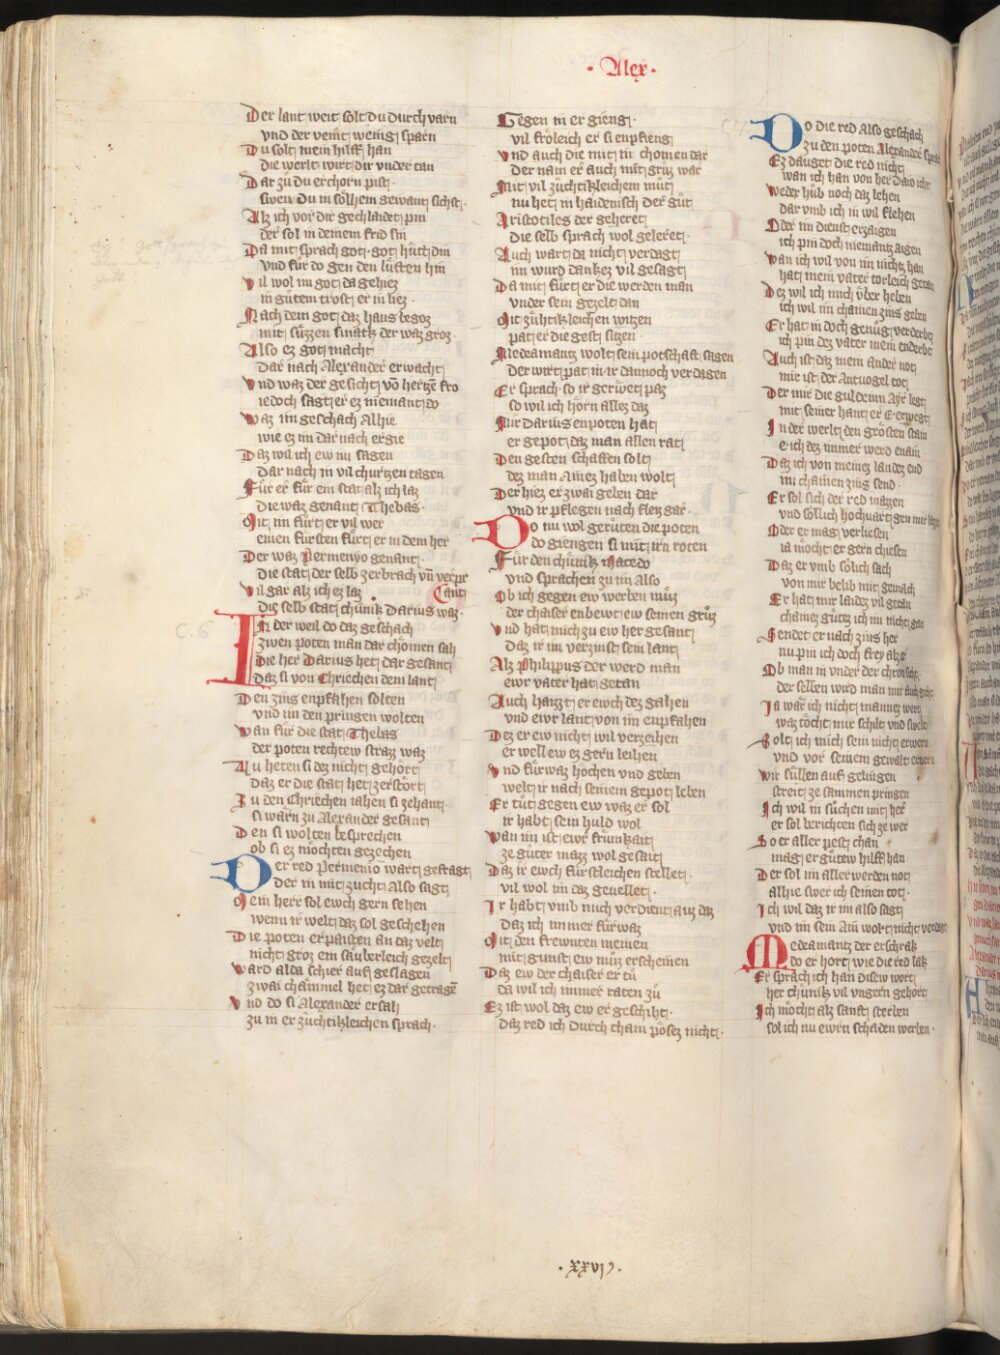 · Alex ·
Der lant weit solt du durch varn
vnd der veint wenig sparn
Du solt mein hilff han
die werlt wirt dir vnder tan
Dar zů du erchorn pist ·
swen du in sölhem gewant sichst ·
Alz ich vor dir gechlaidet pin
der sol in deinem frid sin
Da mit sprach got · got hůt din
vnd fůr do gen den lůften hin
vil wol im got da gehiez
in gůtem trost er in liez ·
Nach dem got daz haus begoz
mit sůzzen smakh der waz groz ·
Also ez got macht
dar nach Alexander erwacht
vnd waz der gesicht võ hertzẽ fro
iedoch sagt er ez niemant do
waz im geschach Alhie
wie ez im dar nach ergie
Daz wil ich ew nu sagen
dar nach in vil churtzen tagen
Fůr er fůr ein stat alz ich laz
die waz genant Thebas
Mit im fůrt er vil wer
einen fursten fůrt er in dem her
Der waz Permenyo genant ·
die stat der selb zerbrach vñ verpr
vil gar alz ich ez laz ant
die selb stat chůnik Darius waz ·
In der weil do daz geschach
zwen poten man dar chomen sah
Die her Darius het dar gesant
Daz si von Chriechen dem lant
Den zins enpfahen solten
vnd im den pringen wolten
wan fůr die stat Thebas
der poten rechtew straz waz
Nu heten si dez nicht gehört
daz er die stat het zerstört
Zu den Chriechen iahen si zehant
si wärn zu Alexander gesant
Den si wolten besprechen
ob si ez möchten gezechen
Der red Permenio wart gefragt
der in mit zucht also sagt
Mein herr sol ewch gern sehen
wenn ir welt daz sol geschehen
Die poten erpaisten an daz velt
nicht groz ein sauberleich gezelt
ward alda schier auf geslagen
zwai chämmel het ez dar getragẽ
vnd do si Alexander ersah
zu in er zůchtikleichen sprach ·
Gegen in er gieng ·
vil fröleich er si enpfieng
vnd auch die mit in chomen dar
der nam er auch mit grůz war
Mit vil zůchtikleichem můt
nu het in haidenisch der gůt
Aristotiles der geheret
die selb sprach wol geleret ·
Auch wart da nicht verdagt
im wurd dankez vil gesagt
Da mit fůrt er die werden man
vnder sein gezelt dan
Mit zůhtikleichen witzen
pat er die gest sitzen ·
Medeamantz wolt sein potschaft sagen
der wirt pat in ir dannoch verdagen
Er sprach · so ir gerůet paz
so wil ich hörn allez daz
Mir Darius enpoten hat
er gepot daz man allen rat
Den gesten schaffen solt
dez man ainez haben wolt
Der hiez er zwai geben dar
vnd ir pflegen nach fleiz gar ·
Do im wol gerůten die poten
do giengen si mit irn roten
Fůr den chůnik Macedo
vnd sprachen zu im also
Ob ich gegen ew werben můz
der chaiser enbewt ew seinen grůz
vnd hat mich zu ew her gesant
daz ir im verzinst sein lant
Alz Philippus der werd man
ewr vater hat getan
Auch haizt er ewch dez gahen
vnd ewr lant von im enpfahen
Dez er ew nicht wil verzeihen
er well ew ez gern leihen
vnd fůrwaz hochen vnd geben
welt ir nach seinem gepot leben
Er tůt gegen ew waz er sol
ir habt sein huld wol
wan im ist ewr frůmkait
ze gůter mazz wol gesait
Daz ir ewch fůrstleichen stellet ·
vil wol im daz geuellet ·
Ir habt vmb mich verdient auz daz
daz ich immer fůrwaz
Mit den frewnten meinen
mit gunst ew můz erscheinen
Daz ew der chaiser er tů
da wil ich immer raten zů
Ez ist wol daz ew er geschiht ·
daz red ich durch chain pösez nicht ·
Do die red also geschach
zu den poten Alexander sprach
Ez dauget die red nicht
wan ich han von her Dario icht
weder hůb noch daz lehen
dar vmb ich in wil flehen
Oder im dienst erzaigen
ich pin doch niemantz aigen
wan ich wil von im nichtz han
hat mein vater torleich getan
Dez wil ich mich vber heben
ich wil im chainen zins geben
Er hat in doch genůg verderbt
ich pin dez vater mein enderbt
Auch ist daz mein ander not
mir ist der Antuogel tot
Der mir die guldeinn Ayr legt
mit seiner hant er E erwegt
In der werlt den grösten stain
e ich dez immer werd enain ·
Daz ich von meinez landez end
im chainen zins send ·
Er sol sich der red mazzen
vnd sölich hochuart gen mir lazzen
Oder er mag verliesen
ia möcht er gern chiesen
Daz er vmb sölich sach
von mir belib mit gemach
Er hat mir landez vil getan
chainez gůtz ich im nicht gan
Sendet er nach zins her
nu pin ich doch frey alz e
Ob man in vnder der chron siht
der selben wird man mir auch giht
Ia wär ich nicht mannez wert
waz töcht mir schilt vnd swert
Solt ich mich sein nicht erwern
vnd vor seinem gewalt ernern
wir sůllen auf gehůgen
streit ze sammen pringen
Ich wil in sůchen mit her
er sol berichten sich ze wer
So er aller pest chan
mag er gůtew hilff han
Der sol im aller werden not
alhie swer ich seinen tot ·
Ich wil daz ir im also sagt
vnd im sein Ain wort nicht verdagt
Medeamantz der erschrak
do er hort wie die red lak
Er sprach ich han disew wort
her chůnik vil vngern gehort
Ich möcht alz sanft sterben
sol ich nu ewrn schaden werben ·
C. 6
· xxvj ·